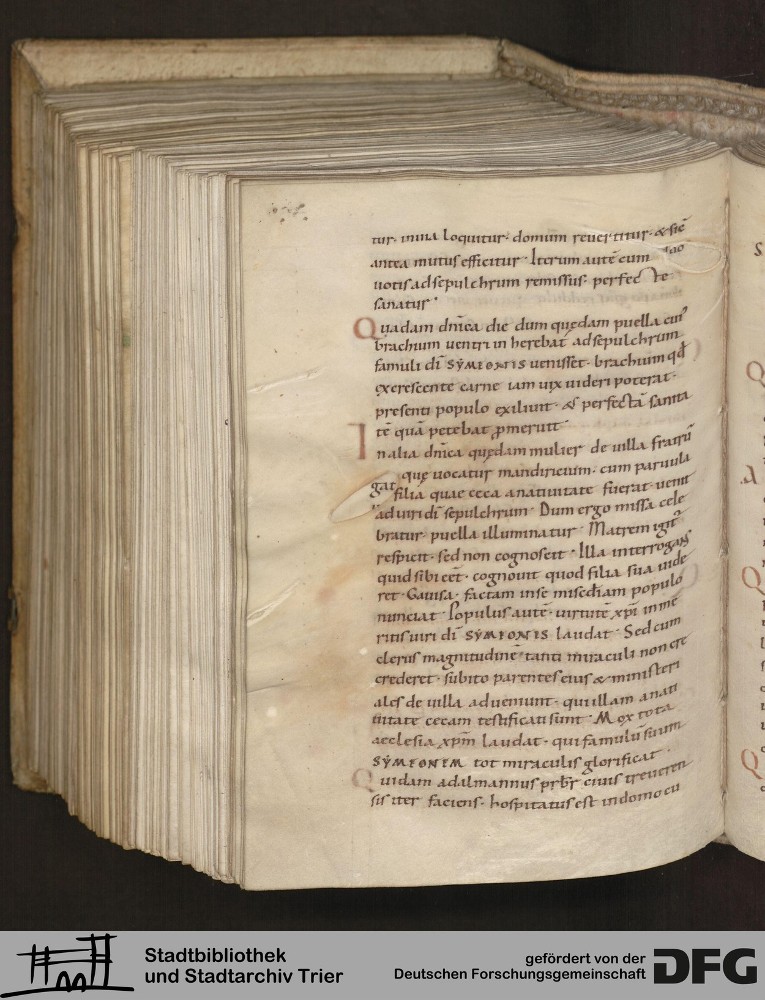 tur· intra loquitur· domum reuertitur· & sic̄
antea mutus efficitur· Iterum autē cum
uotis ad sepulchrum remissus· perfecte
sanatur·
Quadam dn̄ica die dum quędam puella cui'
brachium uentri inherebat ad sepulchrum
famuli dī SYMEONIS uenisset· brachium qd̄
excrescente carne iam uix uideri poterat·
presenti populo exiliuit· & perfectā sanita
tē quā petebat pmeruit·
In alia dn̄ica quędam mulier de uilla fratrū
que uocatur mandiricium· cum paruula
filia quae ceca a natiuitate fuerat uenit
ad uiri dī sepulchrum· Dum ergo missa cele
bratur· puella illuminatur· Matrem igit̄
respicit· sed non cognoscit· Illa interrogans
quid sibi eēt· cognouit quod filia sua uide
ret· Gauisa· factam in se misc̄diam populo
nunciat· Populus autē· uirtutē xp̄i in me
ritis uiri dī SYMEONIS laudat· Sed cum
clerus magnitudinē tanti miraculi non cre
crederet· subito parentes eius & ministeri
ales de uilla adueniunt· qui illam a nati
uitate cecam testificati sunt· Mox tota
aecclesia xp̄m laudat· qui famulū suum
SYMEONEM tot miraculis glorificat·
Quidam adalmannus prb̄r ciuis treueren
sis iter faciens· hospitatus est in domo cu
Stadtbibliothek
und Stadtarchiv Trier
gefördert von der
Deutschen Forschungsgemeinschaft
DFG